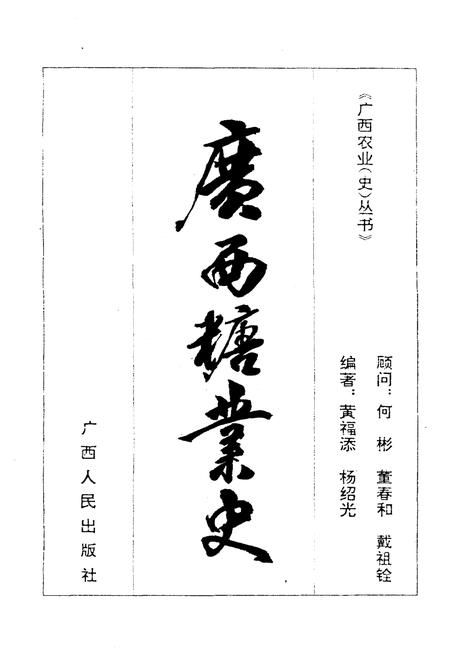 《广西农业(史)丛书》
顾问：何 彬 董春和 戴祖铨
编著：黄福添 杨绍光
廣西糖業史
广西人民出版社